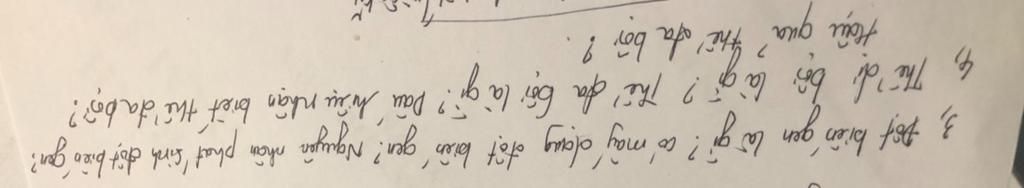 3, Đột biến gen là gì? Có mấy dạng đột biến gen? Nguyên nhân phát sinh đột biến gen?
4, Thể dị bội là gì? Thể đa bội là gì? Dấu hiệu nhận biết thể đa bội?
Hậu quả thể đa bội?